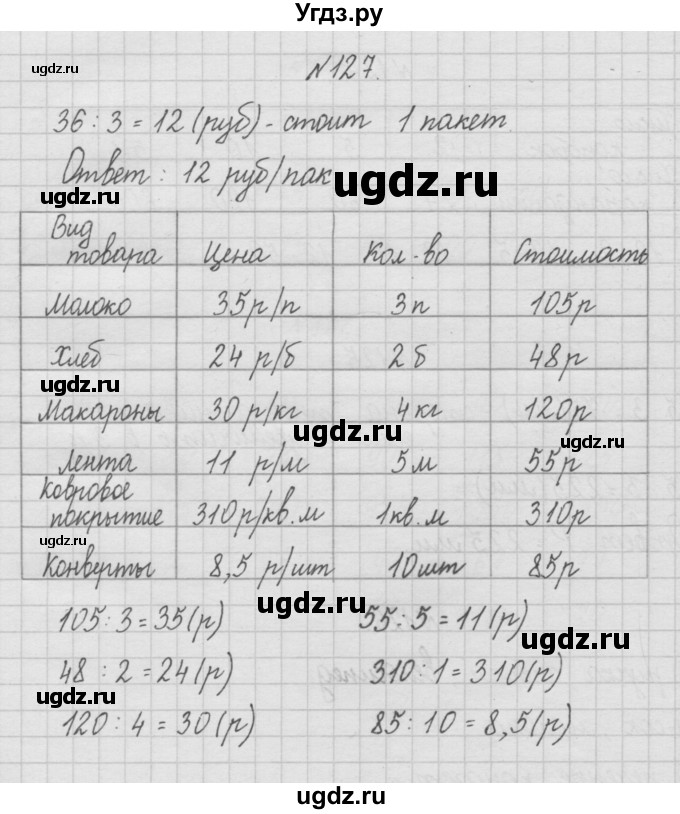 Угдз.ру
ugdz.ru
№127.
36 : 3 = 12 (руб) - стоит 1 пакет.
Ответ : 12 руб/пак
ugdz.ru
ugdz.ru
Вид товара Цена Кол-во Стоимость
Молоко 35р/п 3п 105р
Хлеб 24 р/б 2б 48р
ugdz.ru
Макароны 30 р/кг 4кг 120р
ugdz.ru
ugdz.ru
Лента 11 р/м 5м 55р
Ковровое покрытие 310р/кв.м 1кв.м 310р
ugdz.ru
Конверты 8,5 р/шт 10шт 85р
ugdz.ru
105 : 3 = 35(р) 55 : 5 = 11(р)
ugdz.ru
48 : 2 = 24(р) 310 : 1 = 310(р)
ugdz.ru
120 : 4 = 30(р) 85 : 10 = 8,5(р)
ugdz.ru
ugdz.ru